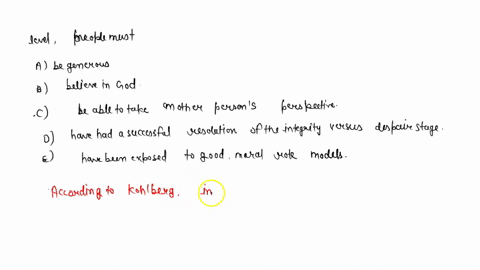 level, people must
A) be generous
B) believe in God.
C) be able to take another person's perspective.
D) have had a successful resolation of the integrity versus despair stage.
E) have been exposed to good, moral role models.
According to Kohlberg, in